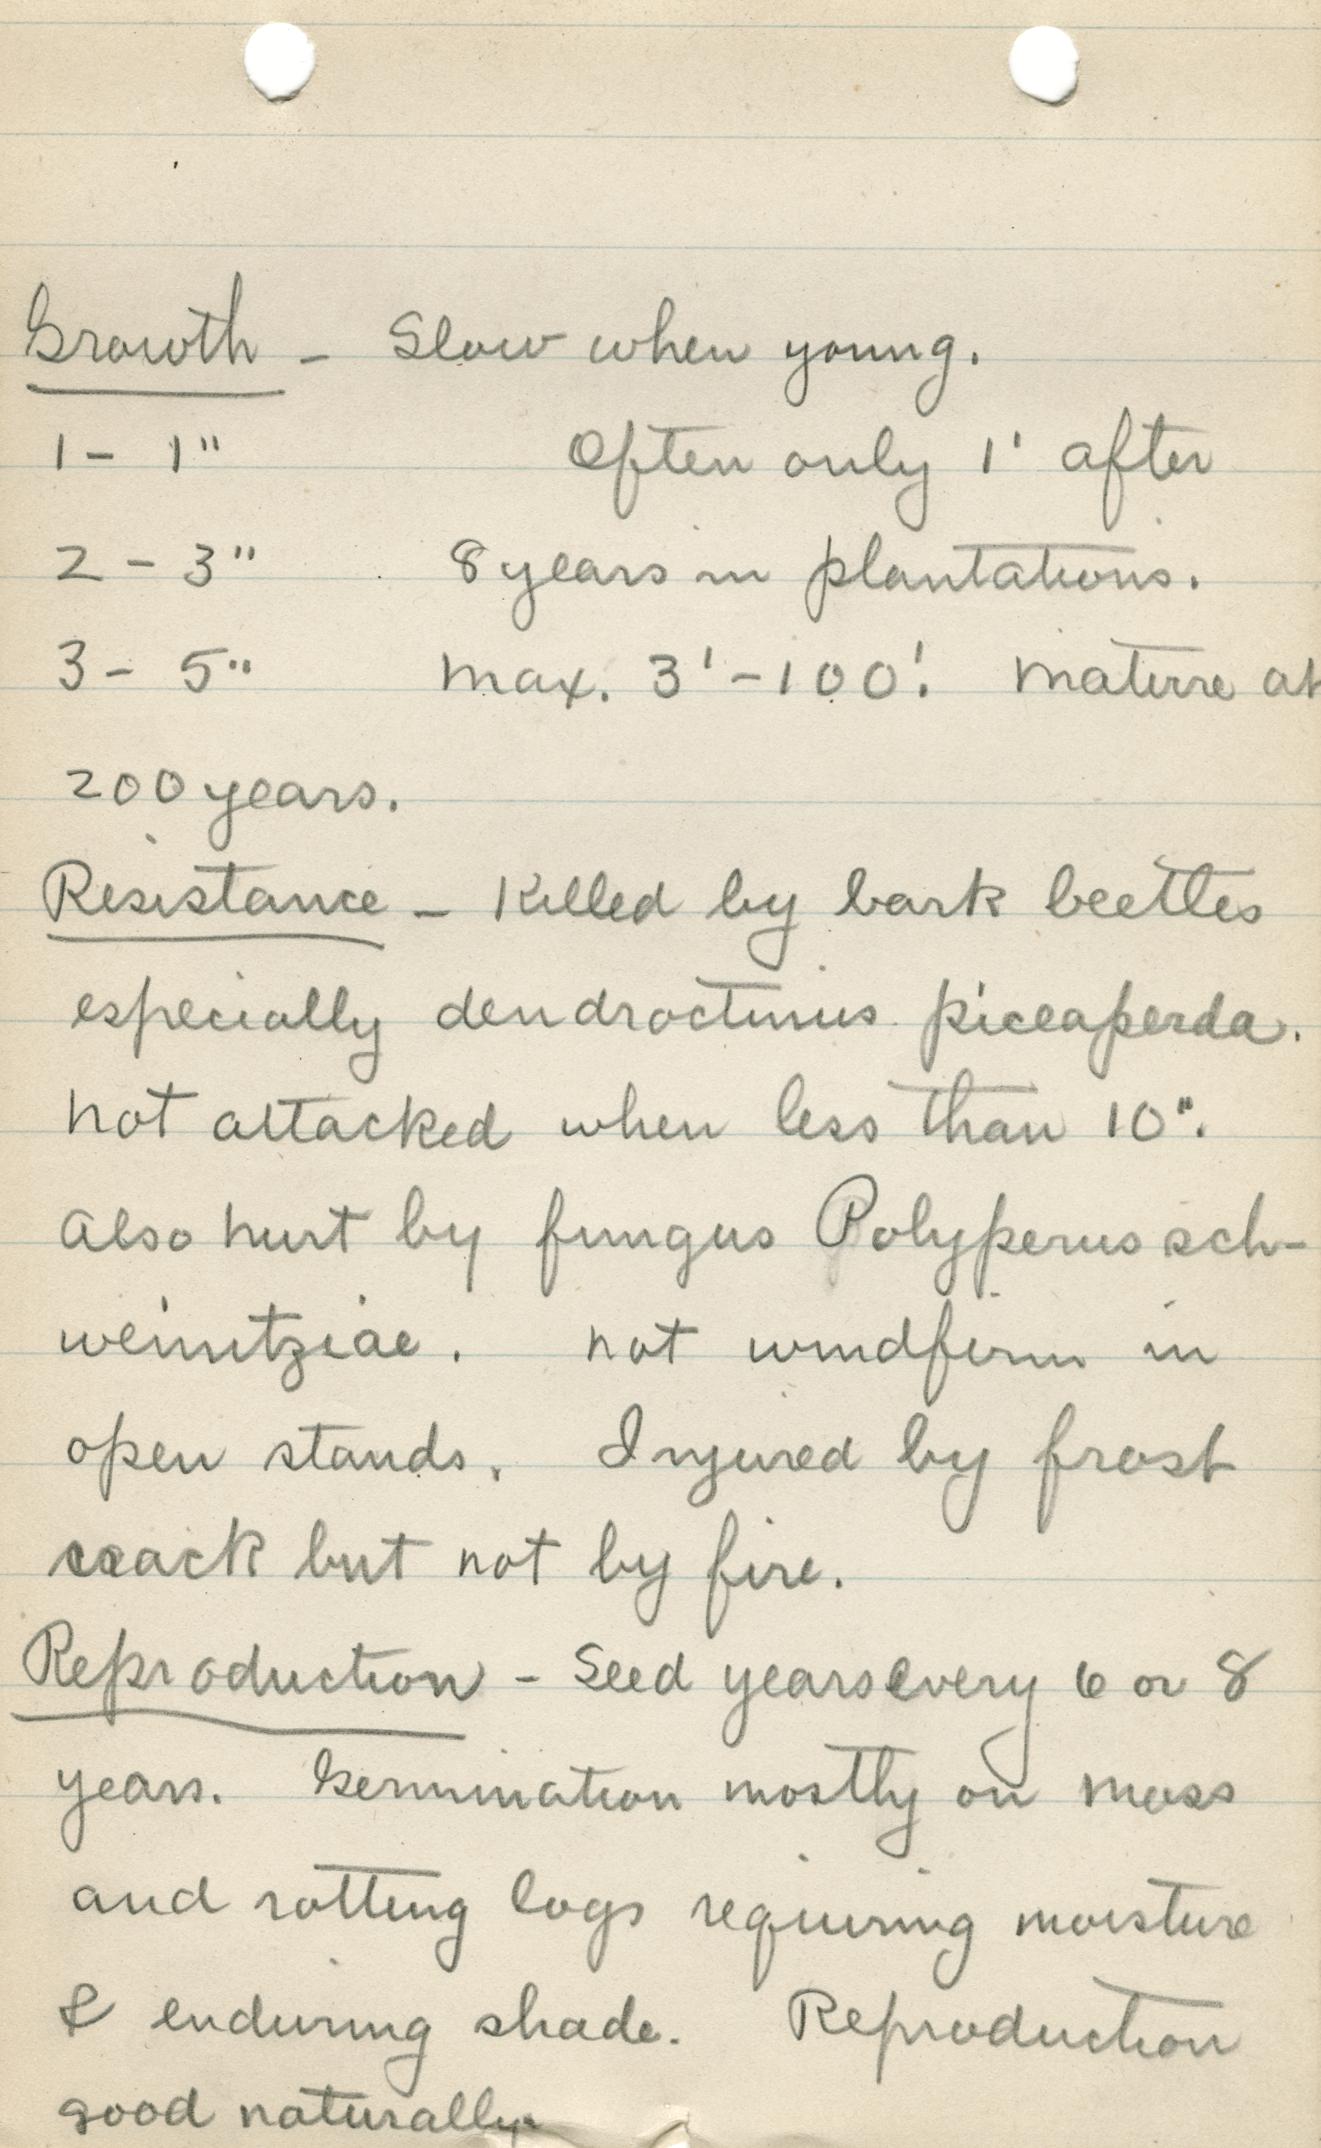 Growth - Slow when young.
1 - 1" Often only 1' after
2 - 3" 8 years in plantations.
3 - 5" Max. 3'-100'. Mature at
200 years.
Resistance - Killed by bark beetles
especially dendroctinus piceaperda.
Not attacked when less than 10".
Also hurt by fungus Polyperus sch-
weinitziae. Not windfirm in
open stands. Injured by frost
crack but not by fire.
Reproduction - Seed years every 6 or 8
years. Germination mostly on moss
and rotting logs requiring moisture
& enduring shade. Reproduction
good naturally.